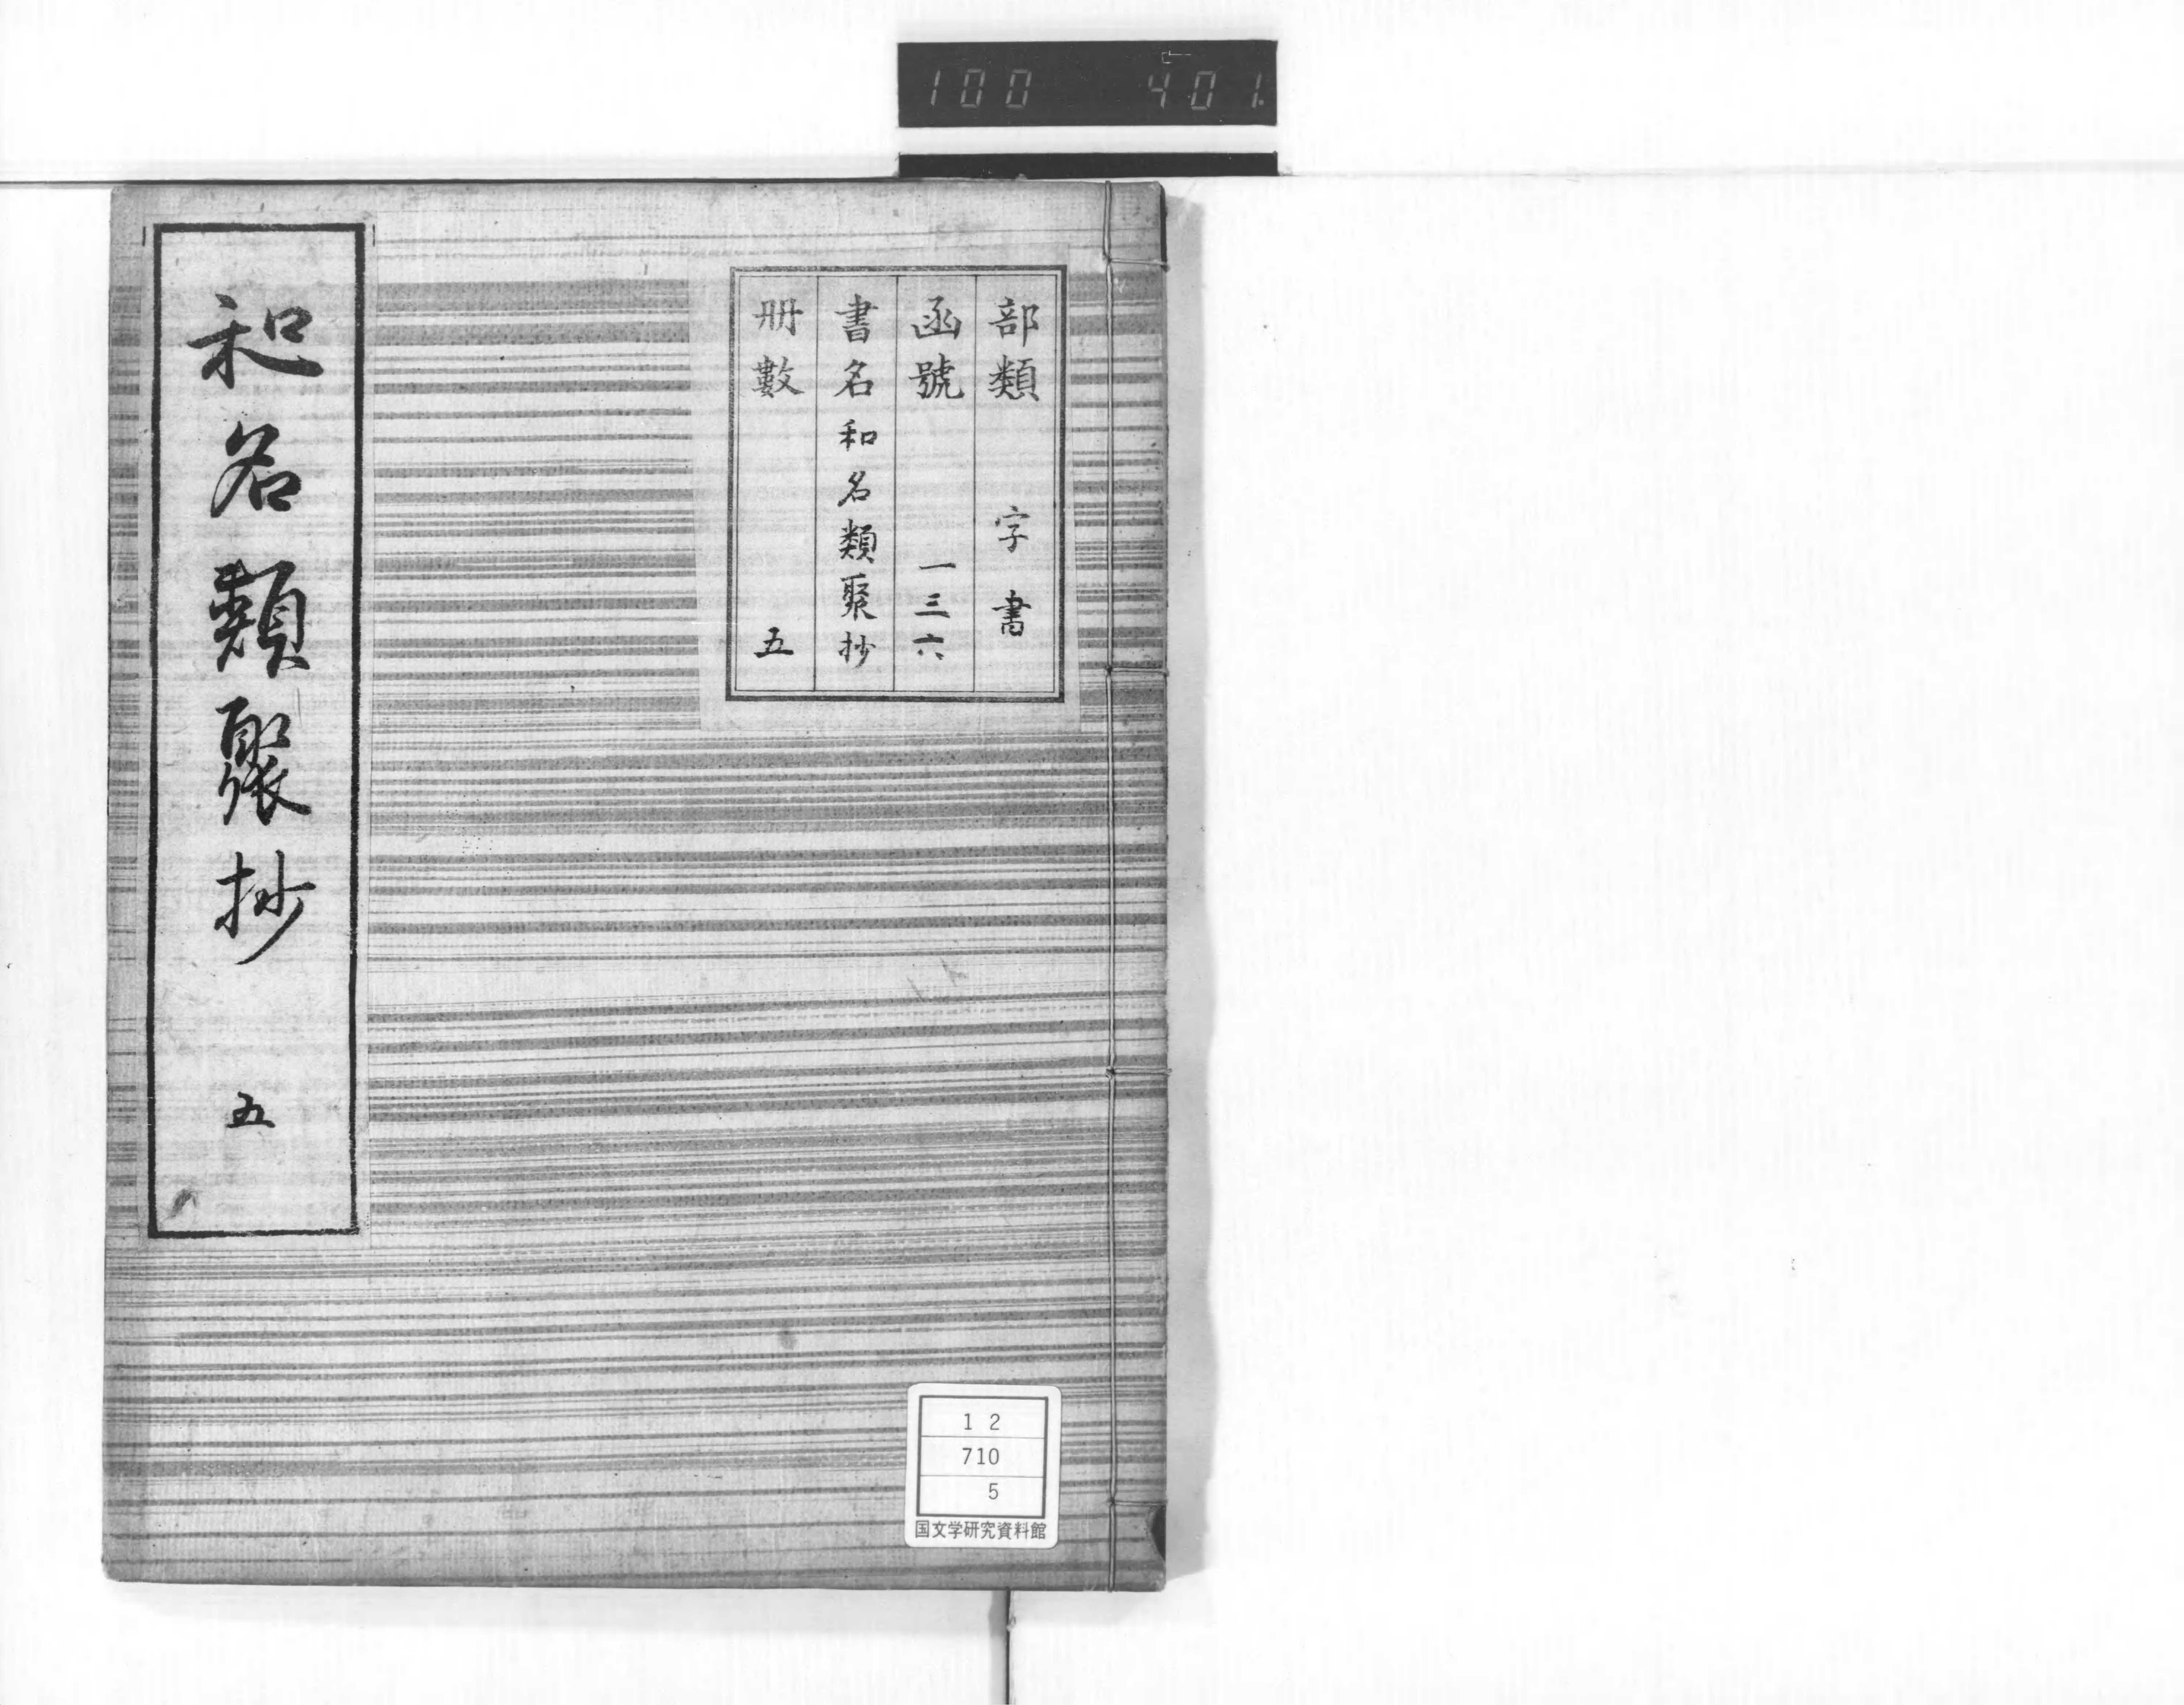 100 401.
部類 字書
函號 一三六
書名 和名類聚抄
冊數 五
和名類聚抄 五
12
710
5
国文学研究資料館